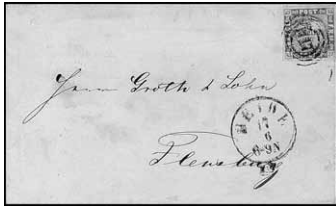 Herrn Groth & Sohn
HEIDE
17
6
6-9N
Flensburg